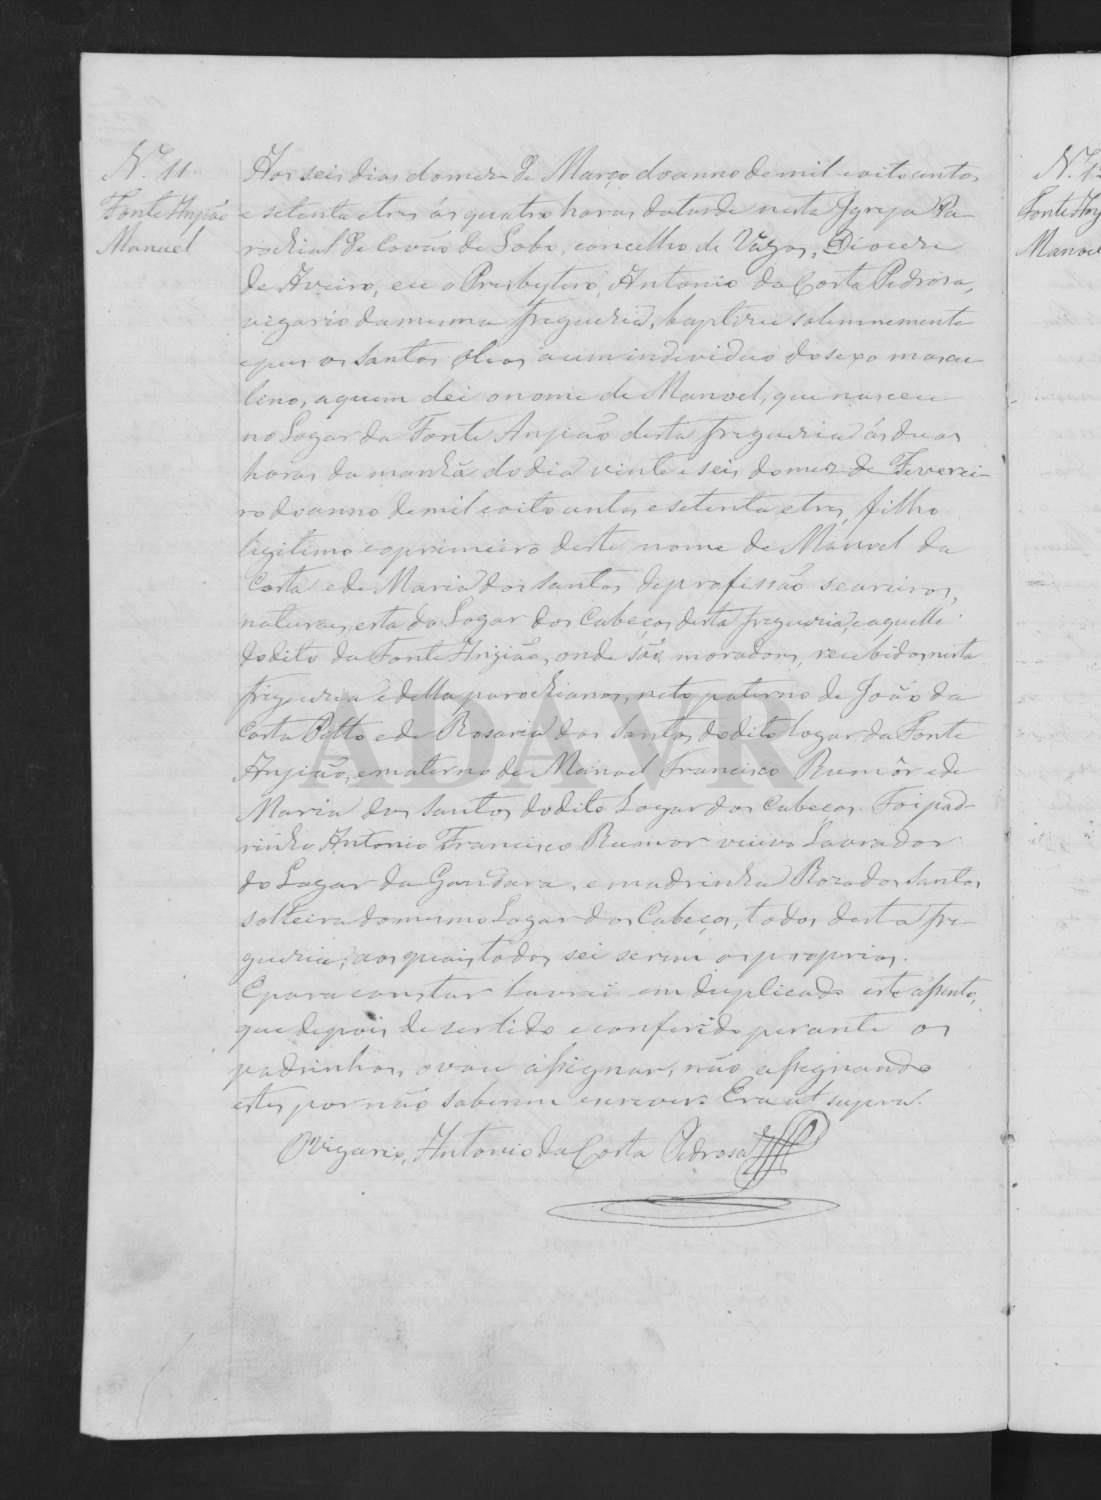 N.º 11
Fonte Anjião
Manuel
Aos seis dias do mez de Março do anno de mil e oitocentos
e setenta e tres ás quatro horas da tarde nesta Igreja Pa-
rochial de Covão do Lobo, concelho de Vagos, Diocese
de Aveiro, eu o Presbytero, Antonio da Costa Pedrosa,
vigario da mesma freguezia, baptizei solemnemente
e puz os Santos Oleos a um individuo do sexo mascu-
lino, a quem dei o nome de Manoel, que nasceu
no Logar da Fonte Anjião desta freguezia ás duas
horas da manhã do dia vinte e seis do mez de Feverei-
ro do anno de mil e oitocentos e setenta e tres, filho
legitimo e o primeiro deste nome de Manoel da
Costa e de Maria dos Santos de profissão seareiros,
naturaes, esta do Logar dos Cabeços desta freguezia, e aquelle
do dito da Fonte Anjião, onde são moradores, recebidos nesta
freguezia e della parochianos, neto paterno de João da
Costa Petto e de Rosaria dos Santos do dito Logar da Fonte
Anjião, e materno de Manoel Francisco Rumôr e de
Maria dos Santos do dito Logar dos Cabeços. Foi pad-
rinho Antonio Francisco Rumor viuvo Lavrador
do Logar da Gandara, e madrinha Roza dos Santos
solteira do mesmo Logar dos Cabeços, todos desta fre-
guezia, aos quaes todos sei serem os proprios.
E para constar lavrei em duplicado este assento,
que depois de ser lido e conferido perante os
padrinhos, o vou assignar, não assignando
estes por não saberem escrever. Era ut supra.
O Vigario, Antonio da Costa Pedrosa
ADAVR
N.º 1
Fonte Anj
Manoel